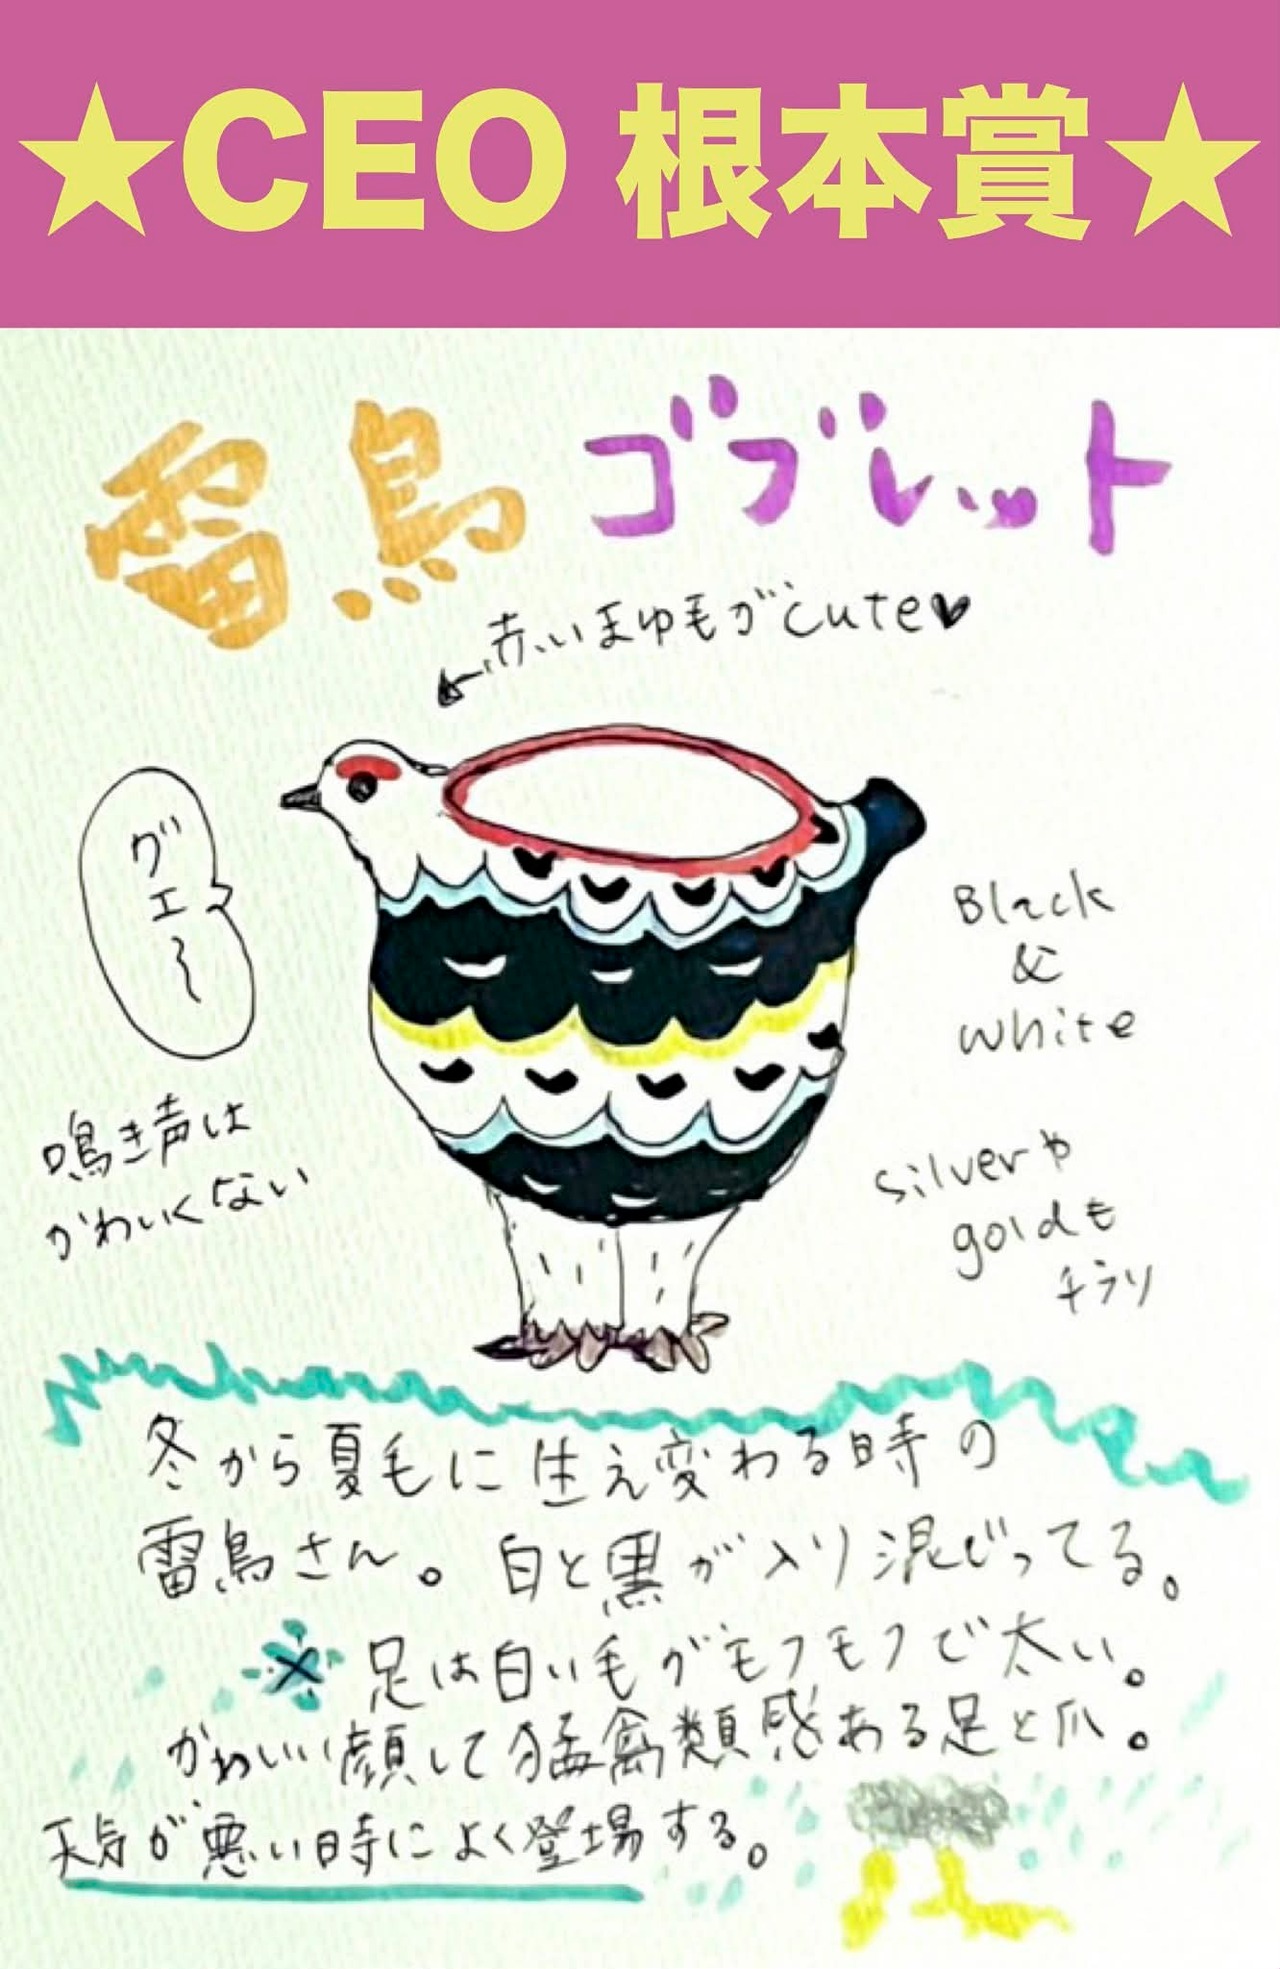 ★CEO 根本賞★
雷鳥ゴブレット
赤いまゆ毛がcute♥
グエ〜
鳴き声は
かわいくない
Black
&
white
silverや
goldも
チラリ
冬から夏毛に生え変わる時の
雷鳥さん。白と黒が入り混じってる。
※足は白い毛がモフモフで太い。
かわいい顔して猛禽類感ある足と爪。
天気が悪い時によく登場する。